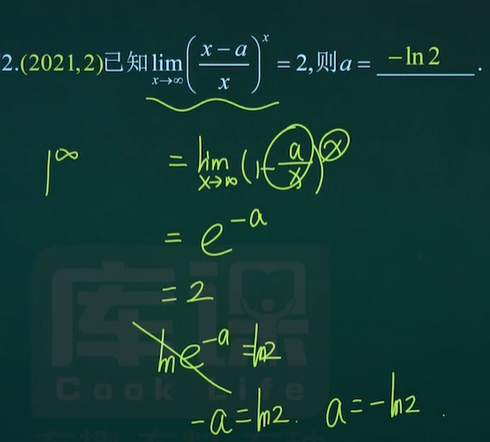 2.(2021,2)已知lim(x→∞)((x-a)/x)^x=2,则a= -ln2 .
1^∞ =lim(x→∞)(1-a/x)^x
=e^-a
=2
lne^-a=ln2
-a=ln2. a=-ln2.
库课
Cook Life